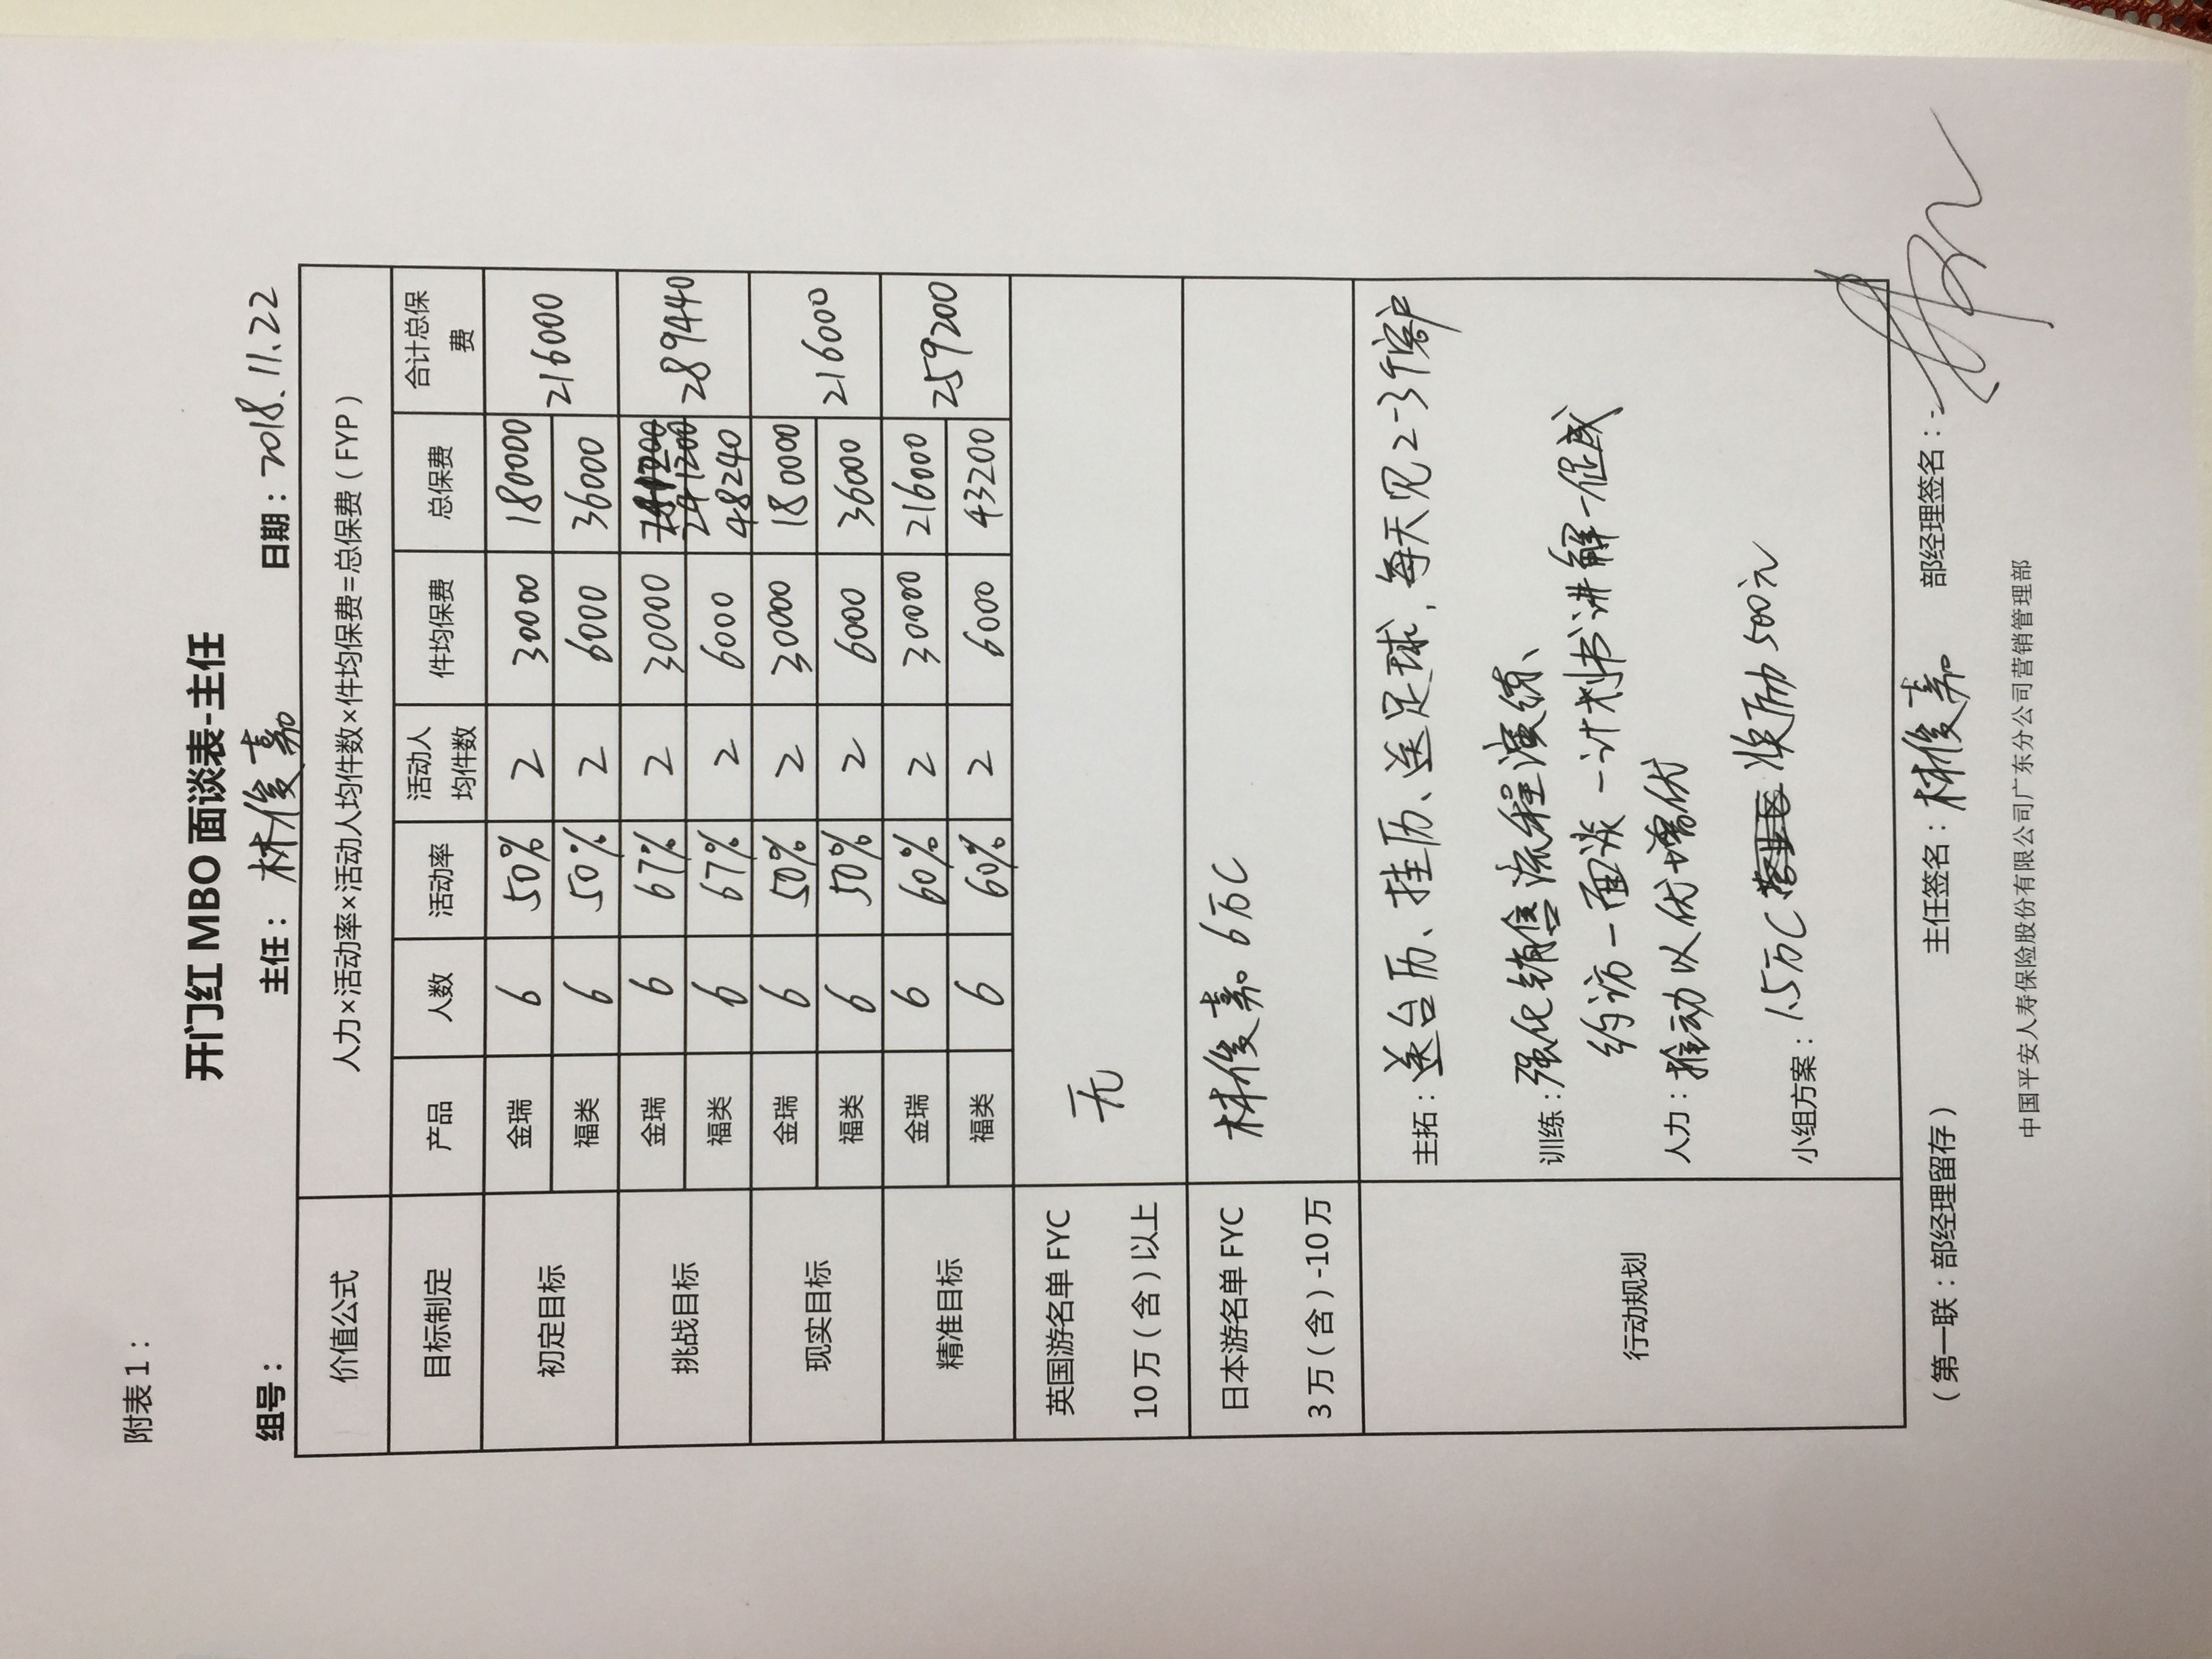 附表1：
开门红 MBO 面谈表-主任
组号： 主任：林俊嘉 日期：2018.11.22
价值公式 人力×活动率×活动人均件数×件均保费=总保费（FYP）
目标制定 产品 人数 活动率 活动人均件数 件均保费 总保费 合计总保费
初定目标 金瑞 6 50% 2 30000 180000 216000
福类 6 50% 2 6000 36000
挑战目标 金瑞 6 67% 2 30000 241200 289440
福类 6 67% 2 6000 48240
现实目标 金瑞 6 50% 2 30000 180000 216000
福类 6 50% 2 6000 36000
精准目标 金瑞 6 60% 2 30000 216000 259200
福类 6 60% 2 6000 43200
英国游名单 FYC
10万（含）以上
无
日本游名单 FYC
3万（含）-10万
林俊嘉 6万C
行动规划
主拓：送台历、挂历、送足球，每天见2-3个客户
训练：强化销售流程演练、
约访-面谈-计划书讲解-促成
人力：推动以优增优
小组方案：1.5万C 奖励500元
（第一联：部经理留存） 主任签名：林俊嘉 部经理签名：
中国平安人寿保险股份有限公司广东分公司营销管理部